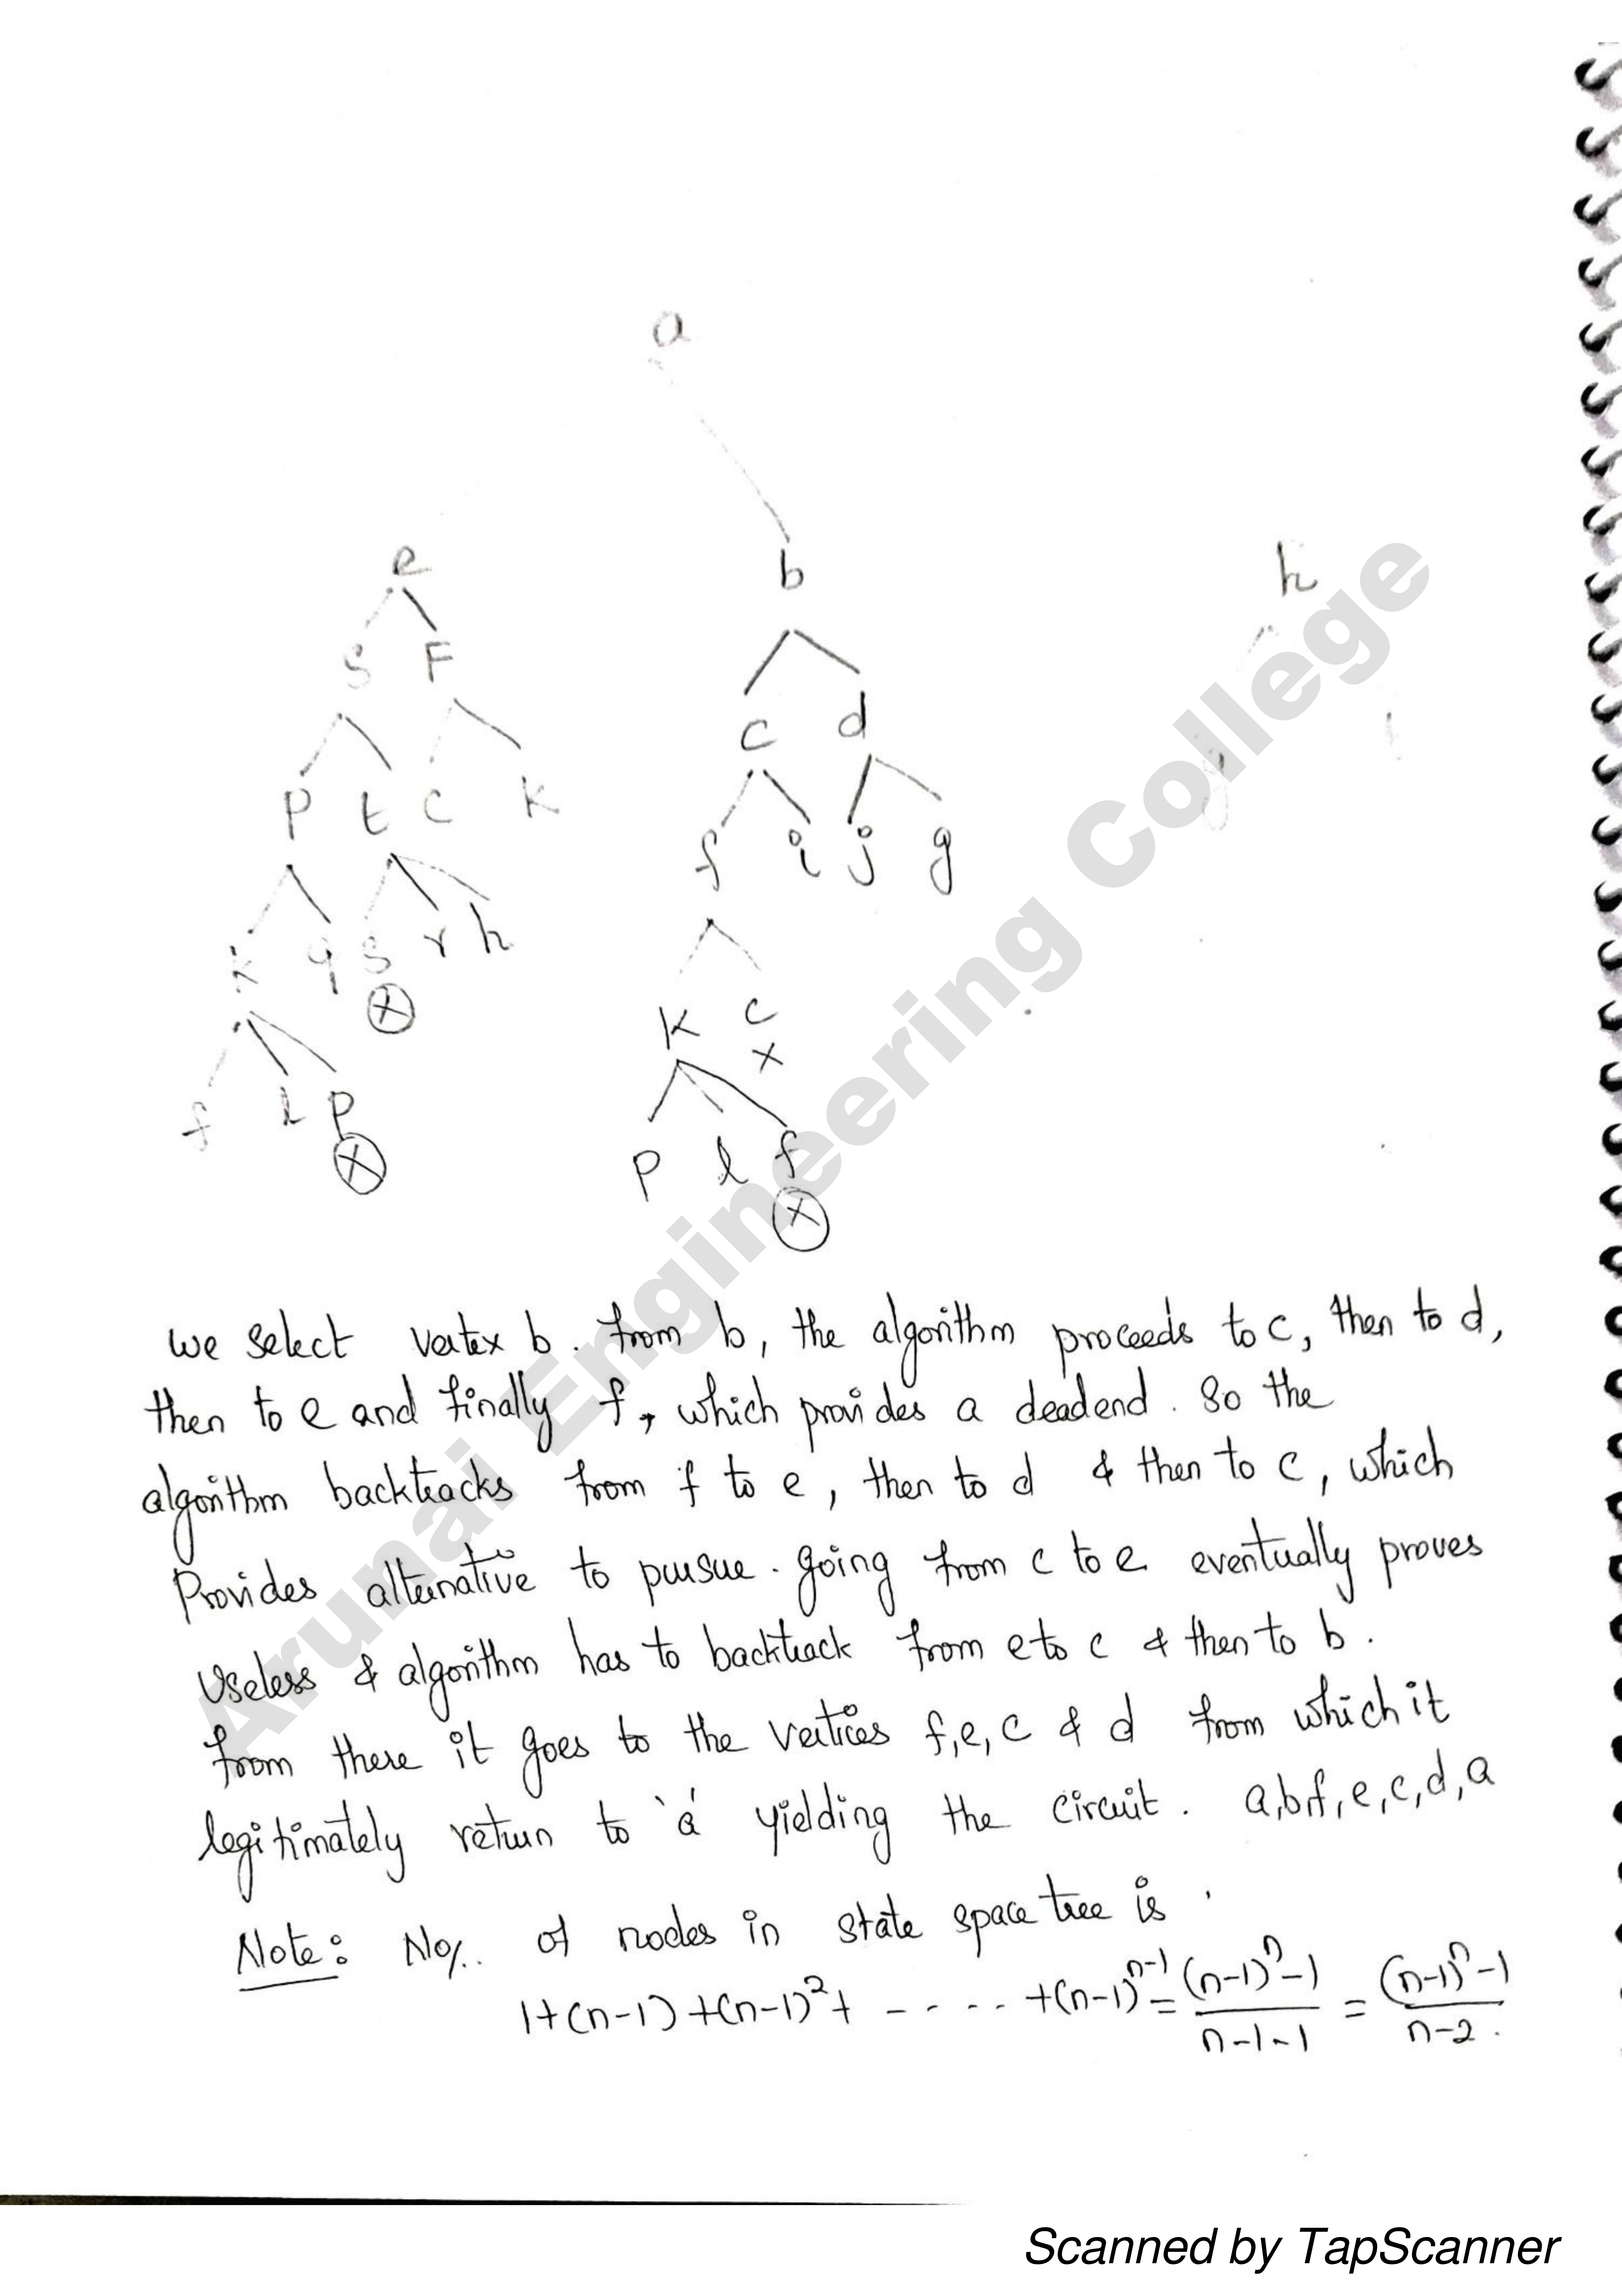 a
e b h
S F
c d
P t C K
f i j g
k q S r h
K C
x
f l P
P l f
we select vertex b. from b, the algorithm proceeds to c, then to d,
then to e and finally f, which provides a deadend. So the
algorithm backtracks from f to e, then to d & then to c, which
Provides alternative to pursue. going from c to e eventually proves
Useless & algorithm has to backtrack from e to c & then to b.
from there it goes to the vertices f,e, c & d from which it
legitimately return to 'a' yielding the circuit. a,b,f,e,c,d,a
Note: No/. of nodes in state space tree is.
1+(n-1)+(n-1)²+ - - - - +(n-1)ⁿ⁻¹= (n-1)ⁿ-1 / n-1-1 = (n-1)ⁿ-1 / n-2.
Arunai Engineering College
Scanned by TapScanner